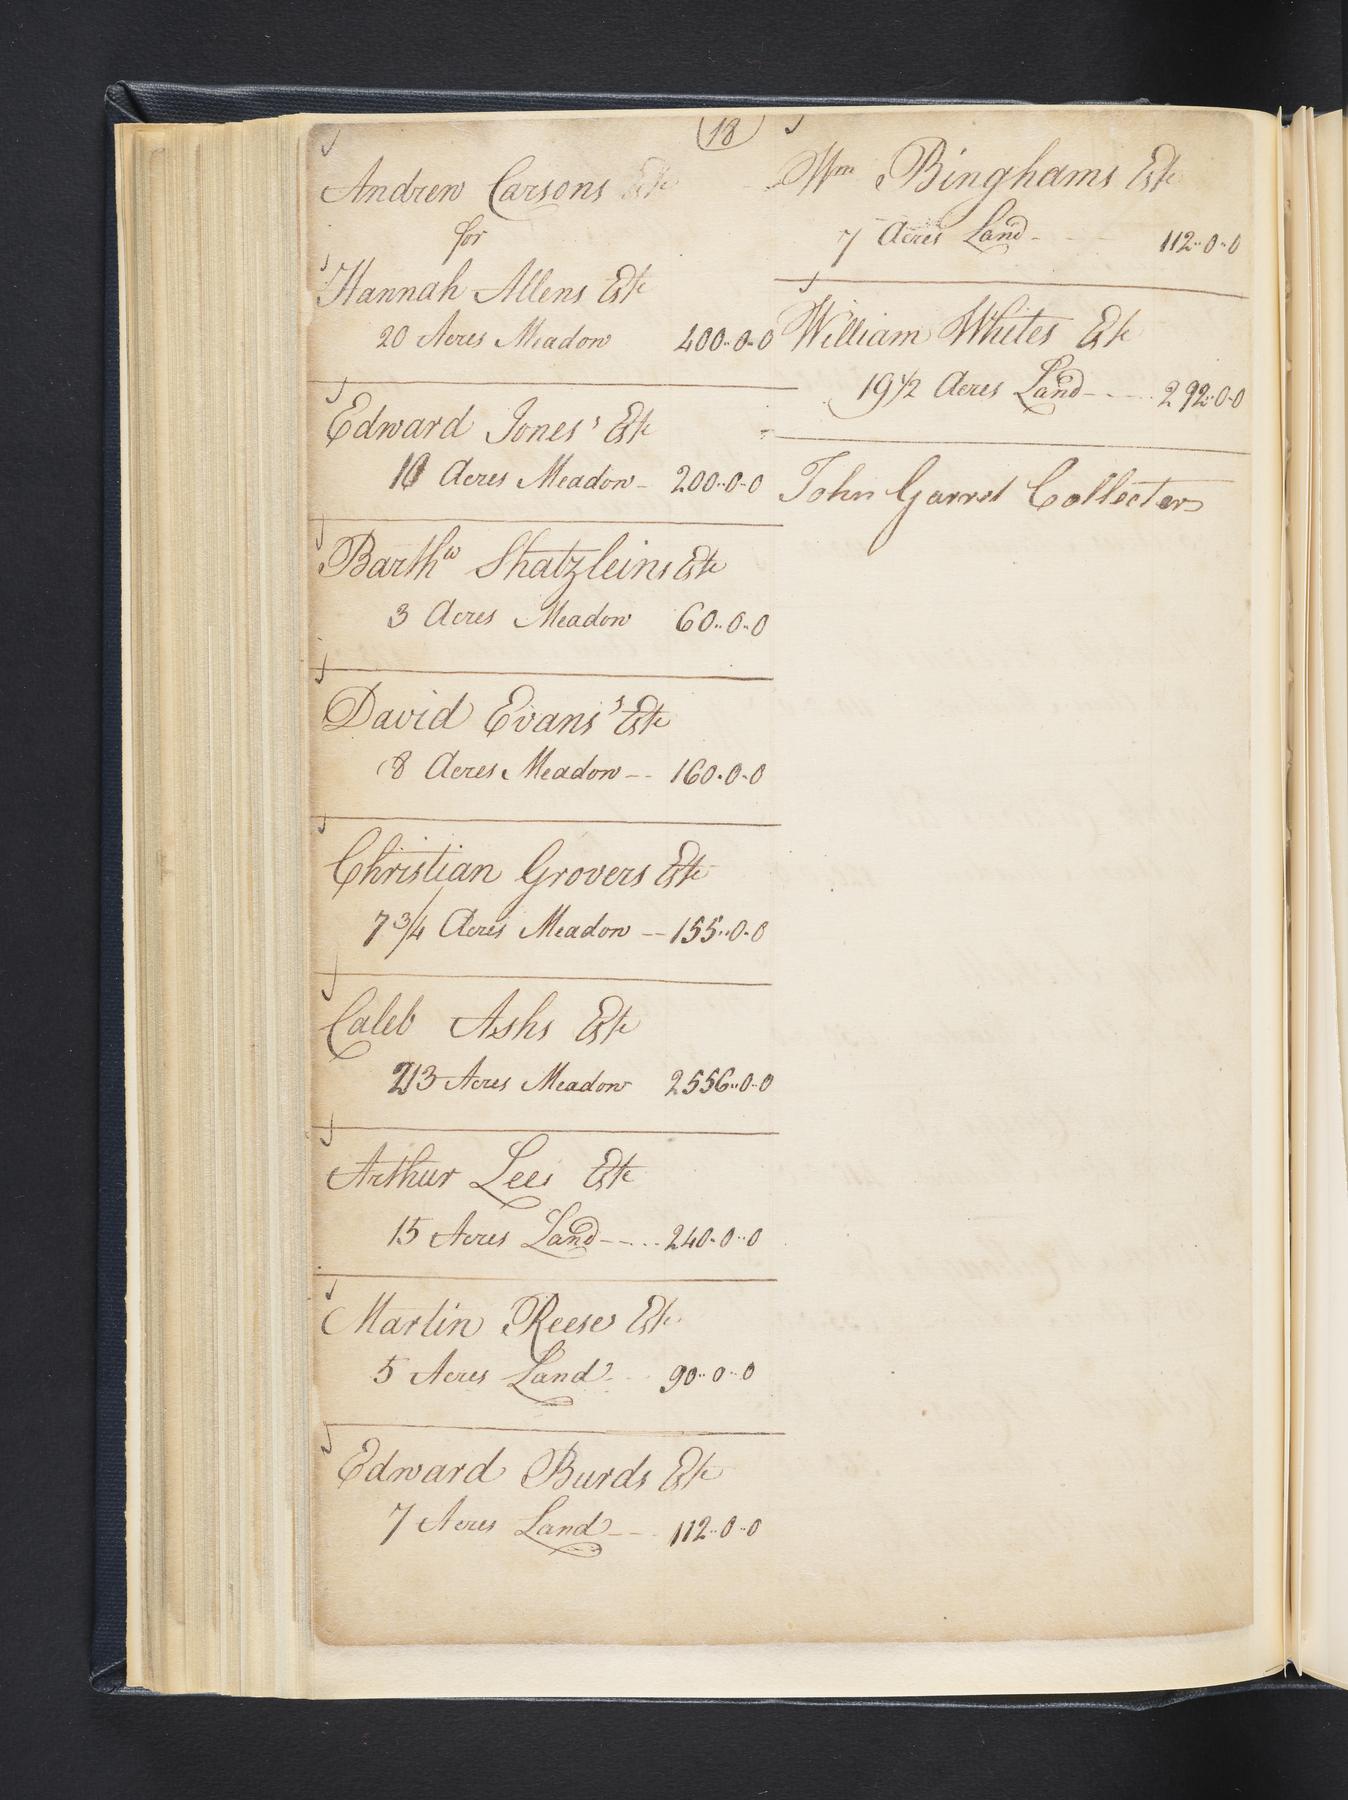 18
Andrew Carsons Este
for
Hannah Allens Este
20 Acres Meadow 400..0..0
Edward Jones's Este
10 Acres Meadow 200..0..0
Barthw Shatzleins Este
3 Acres Meadow 60..0..0
David Evans's Este
8 Acres Meadow -- 160..0..0
Christian Grovers Este
7 3/4 Acres Meadow -- 155..0..0
Caleb Ashs Este
213 Acres Meadow 2556..0..0
Arthur Lees Este
15 Acres Land ---- 240..0..0
Martin Reeses Este
5 Acres Land 90..0..0
Edward Burds Este
7 Acres Land -- 112..0..0
Wm Binghams Este
7 Acres Land - - 112..0..0
William Whites Este
19 1/2 Acres Land ---- 292..0..0
John Garret Collecter